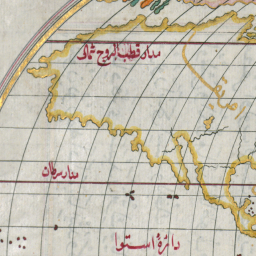 مدار قطب البروج شمالی
مدار سرطان
دائرهٔ استوا